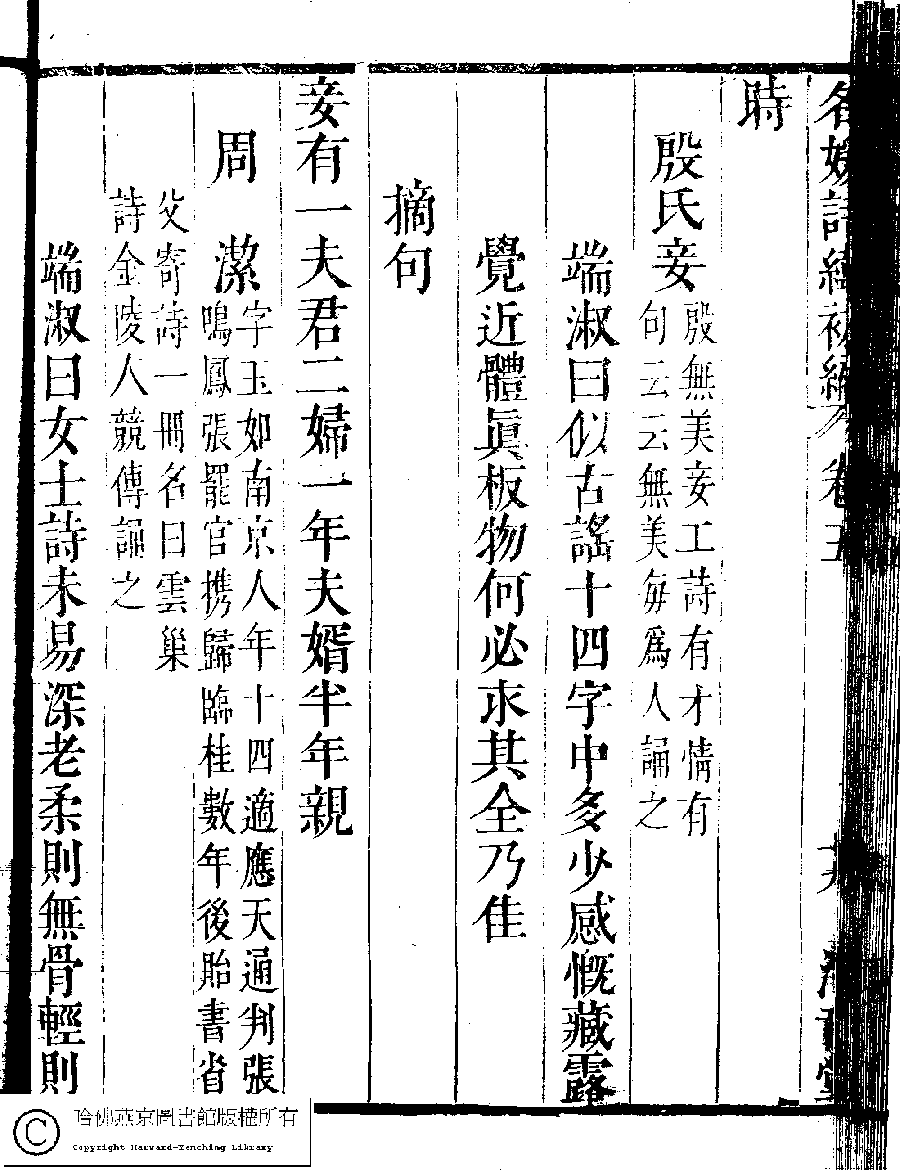 名媛詩緯初編 卷五
時
殷氏妾
殷無美妾工詩有才情有
句云云無美每為人誦之
端淑曰似古謠十四字中多少感慨藏露
覺近體眞板物何必求其全乃佳
摘句
妾有一夫君二婦一年夫婿半年親
周潔
字玉如南京人年十四適應天通判張
鳴鳳張罷官携歸臨桂數年後貽書省
父寄詩一冊名曰雲巢
詩金陵人競傳誦之
端淑曰女士詩未易深老柔則無骨輕則
哈佛燕京圖書館版權所有
Copyright Harvard-Yenching Library